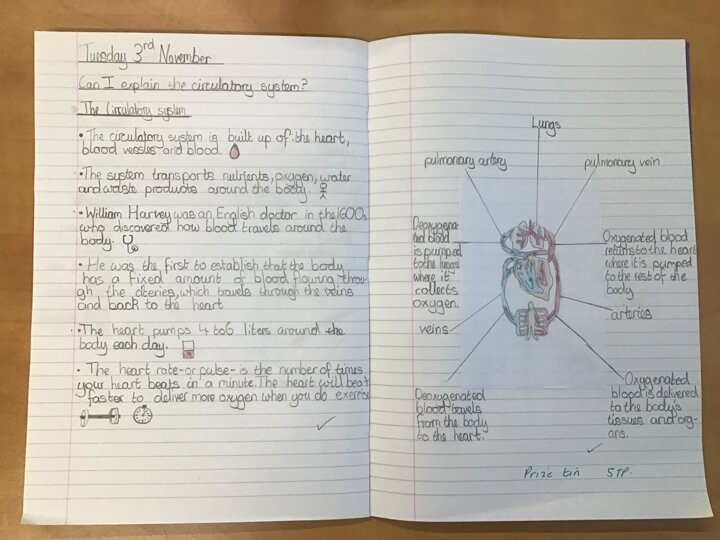 Tuesday 3rd November
Can I explain the circulatory system?
The Circulatory system
• The circulatory system is built up of the heart,
blood vessles and blood.
• The system transports nutrients, oxygen, water
and waste products around the body.
• William Harvey was an English doctor in the 1600s
who discovered how blood travels around the
body.
• He was the first to establish that the body
has a fixed amount of blood flowing throu-
gh, the ateries, which travels through the veins
and back to the heart
• The heart pumps 4 to 6 liters around the
body each day.
• The heart rate-or pulse-is the number of times
your heart beats in a minute. The heart will beat
faster to deliver more oxygen when you do exercise
Lungs
pulmonary artery
pulmonary vein
Deoxygena
ted blood
is pumped
to the lungs
where it
collects
oxygen.
Oxygenated blood
returns to the heart
where it is pumped
to the rest of the
body
veins
arteries
Deoxygenated
blood travels
from the body
to the heart.
Oxygenated
blood is delivered
to the body's
tissues and org-
ans.
Prize tin 5TP.